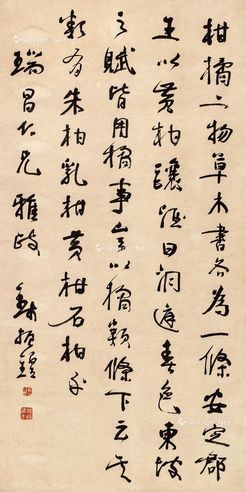 柑橘二物草木書各為一條安定郡
王以黃柑釀酒曰洞庭春色東坡
之賦皆用橘事豈以橘類條下云其
類有朱柑乳柑黃柑石柑乎
瑞昌仁兄雅政